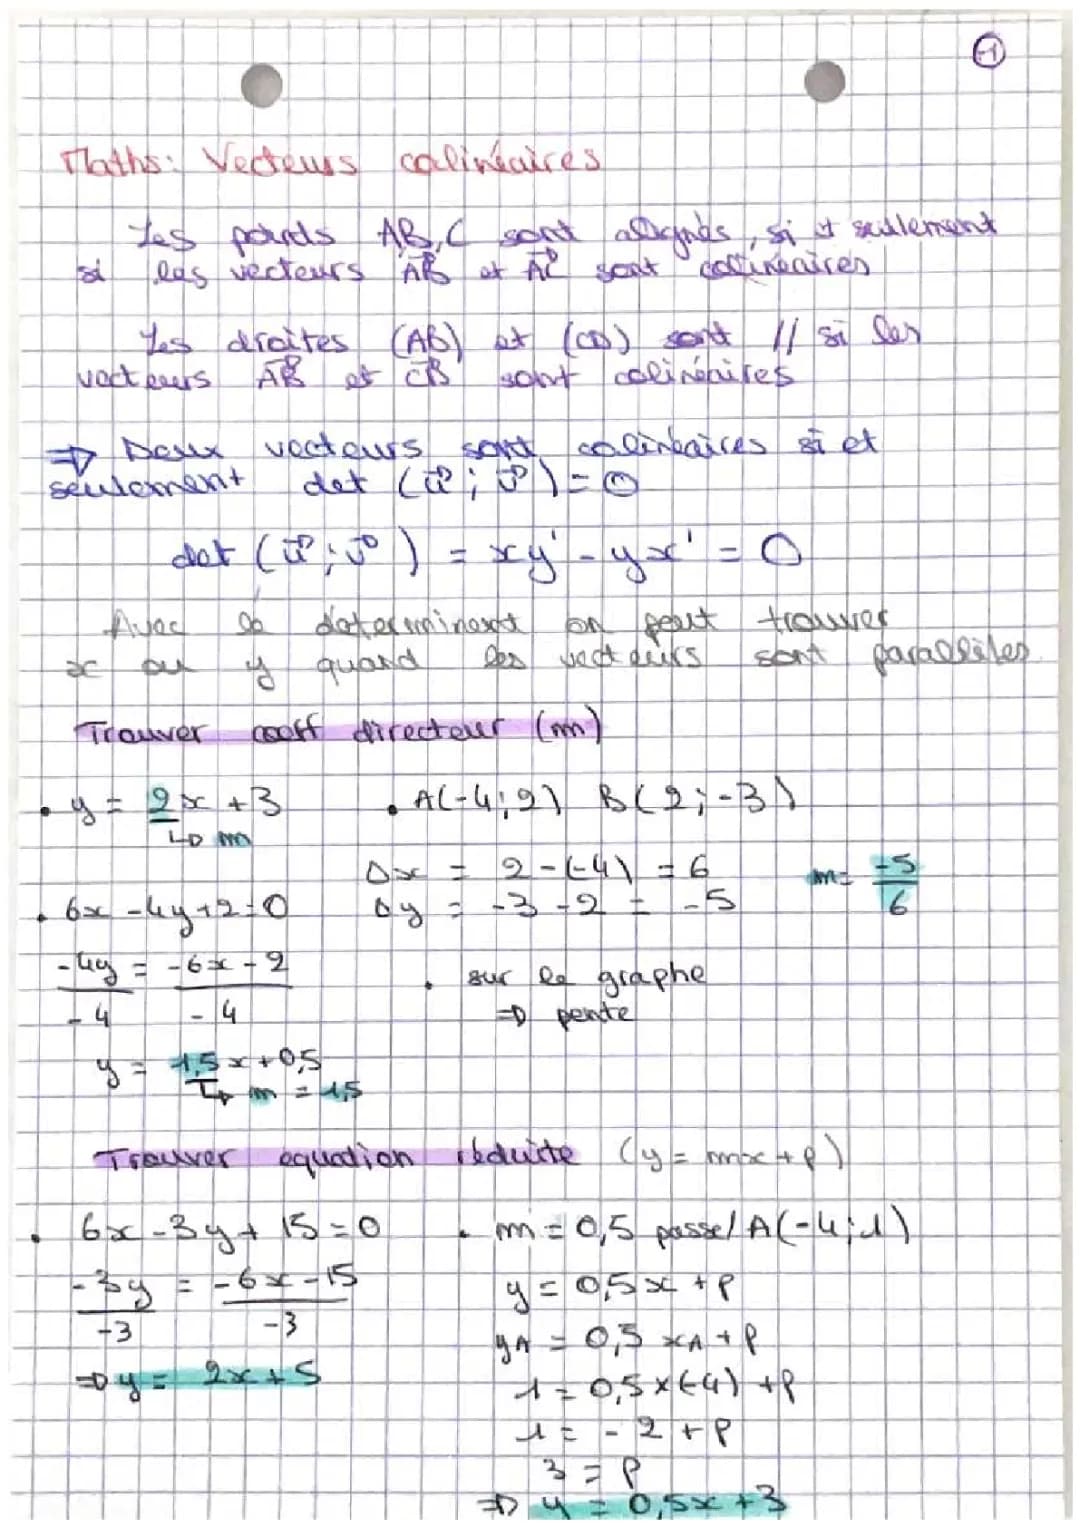 -1
Maths: Vecteurs colinéaires
Les points AB,C sont alignés, si et seulement
si les vecteurs AB et AC sont colinéaires
Les droites (AB) et (CD) sont // si les
vecteurs AB et CB sont colinéaires
⇒ Deux vecteurs sont colinéaires si et
seulement det (u ; v) = 0
det (u ; v) = xy' - yx' = 0
Avec le determinant on peut trouver
x ou y quand les vecteurs sont parallèles
Trouver coeff directeur (m)
• y = 2x + 3
↳ m
• A(-4;2) B(2;-3)
Δx = 2-(-4) = 6
Δy = -3-2 = -5
m = -5/6
• 6x - 4y + 2 = 0
-4y/-4 = -6x - 2/-4
y = 1,5x + 0,5
↳ m = 1,5
• sur le graphe
⇒ pente
Trouver equation réduite (y = mx + p)
• 6x - 3y + 15 = 0
-3y/-3 = -6x - 15/-3
⇒ y = 2x + 5
• m = 0,5 passe/ A(-4;1)
y = 0,5x + p
yA = 0,5 xA + p
1 = 0,5×(-4) + p
1 = -2 + p
3 = p
⇒ y = 0,5x + 3